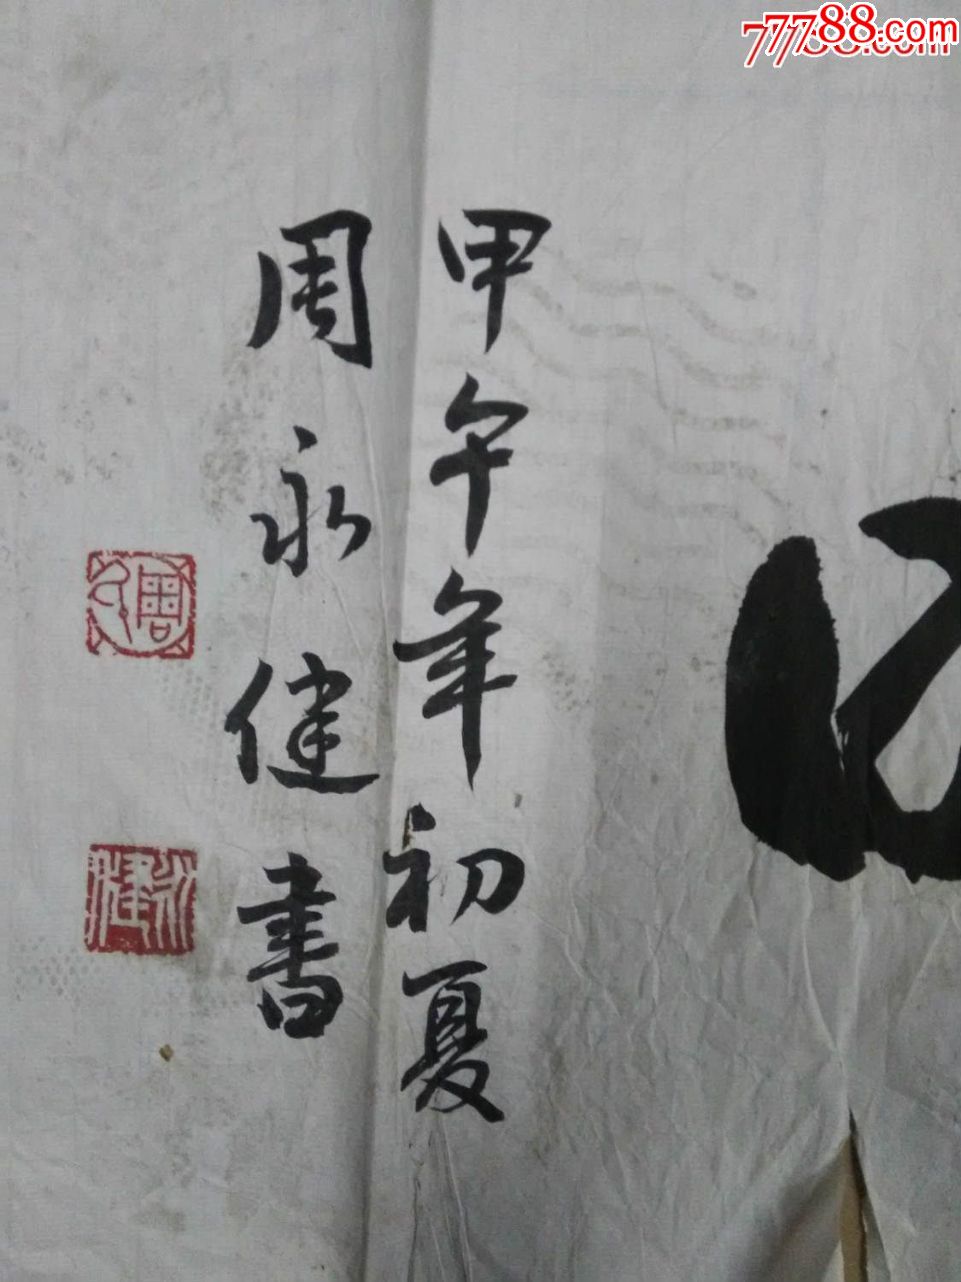 77788.com
甲午年初夏
周永健書